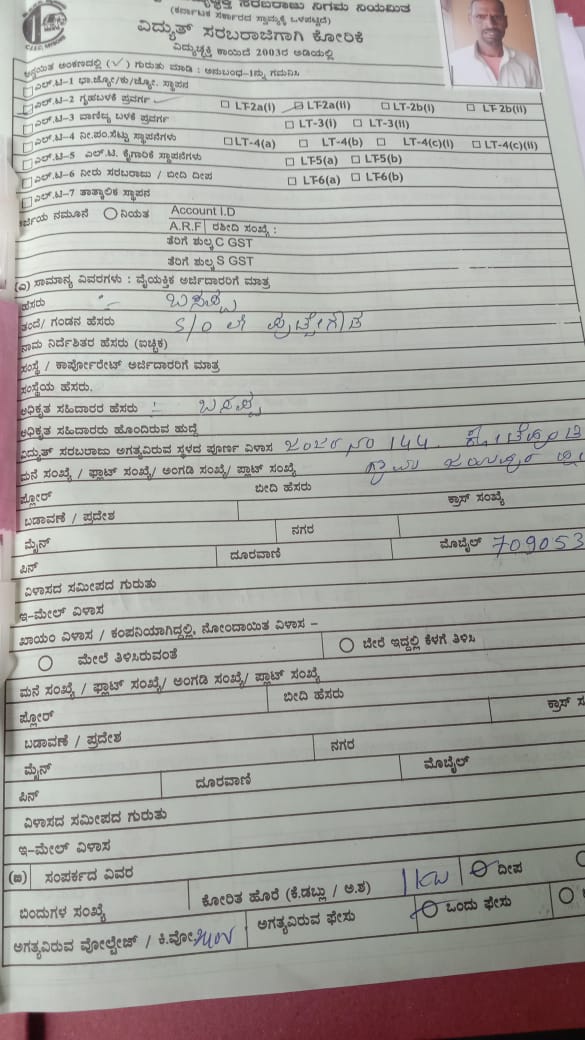 ಸರಬರಾಜು ನಿಗಮ ನಿಯಮಿತ
(ಕರ್ನಾಟಕ ಸರ್ಕಾರದ ಸ್ವಾಮ್ಯಕ್ಕೆ ಒಳಪಟ್ಟಿದೆ)
ವಿದ್ಯುತ್ ಸರಬರಾಜಿಗಾಗಿ ಕೋರಿಕೆ
ವಿದ್ಯುಚ್ಛಕ್ತಿ ಕಾಯಿದೆ 2003ರ ಅಡಿಯಲ್ಲಿ
ಅನ್ವಯಿತ ಅಂಕಣದಲ್ಲಿ (✓) ಗುರುತು ಮಾಡಿ : ಅನುಬಂಧ-1ನ್ನು ಗಮನಿಸಿ
ಎಲ್.ಟಿ-1 ಭಾ.ಜ್ಯೋ/ಕು/ಜ್ಯೋ. ಸ್ಥಾಪನ
ಎಲ್.ಟಿ-2 ಗೃಹಬಳಕೆ ಪ್ರವರ್ಗ LT-2a(i) LT-2a(ii) LT-2b(i) LT-2b(ii)
ಎಲ್.ಟಿ-3 ವಾಣಿಜ್ಯ ಬಳಕೆ ಪ್ರವರ್ಗ LT-3(i) LT-3(ii)
ಎಲ್.ಟಿ-4 ನೀ.ಪಂ.ಸೆಟ್ಟು ಸ್ಥಾಪನೆಗಳು LT-4(a) LT-4(b) LT-4(c)(i) LT-4(c)(ii)
ಎಲ್.ಟಿ-5 ಎಲ್.ಟಿ. ಕೈಗಾರಿಕೆ ಸ್ಥಾಪನೆಗಳು LT-5(a) LT-5(b)
ಎಲ್.ಟಿ-6 ನೀರು ಸರಬರಾಜು / ಬೀದಿ ದೀಪ LT-6(a) LT-6(b)
ಎಲ್.ಟಿ-7 ತಾತ್ಕಾಲಿಕ ಸ್ಥಾಪನ
ಅರ್ಜಿಯ ನಮೂನೆ ನಿಯತ Account I.D
A.R.F ರಶೀದಿ ಸಂಖ್ಯೆ :
ತೆರಿಗೆ ಶುಲ್ಕ C GST
ತೆರಿಗೆ ಶುಲ್ಕ S GST
(ಎ) ಸಾಮಾನ್ಯ ವಿವರಗಳು : ವೈಯಕ್ತಿಕ ಅರ್ಜಿದಾರರಿಗೆ ಮಾತ್ರ
ಹೆಸರು :- ಬಸಪ್ಪ
ತಂದೆ/ ಗಂಡನ ಹೆಸರು S/O ಲೇ
ನಾಮ ನಿರ್ದೇಶಿತರ ಹೆಸರು (ಐಚ್ಛಿಕ)
ಸಂಸ್ಥೆ / ಕಾರ್ಪೋರೇಟ್ ಅರ್ಜಿದಾರರಿಗೆ ಮಾತ್ರ
ಸಂಸ್ಥೆಯ ಹೆಸರು.
ಅಧಿಕೃತ ಸಹಿದಾರರ ಹೆಸರು :- ಬಸಪ್ಪ
ಅಧಿಕೃತ ಸಹಿದಾರರು ಹೊಂದಿರುವ ಹುದ್ದೆ
ವಿದ್ಯುತ್ ಸರಬರಾಜು ಅಗತ್ಯವಿರುವ ಸ್ಥಳದ ಪೂರ್ಣ ವಿಳಾಸ 144.
ಮನೆ ಸಂಖ್ಯೆ / ಫ್ಲಾಟ್ ಸಂಖ್ಯೆ/ ಅಂಗಡಿ ಸಂಖ್ಯೆ/ ಪ್ಲಾಟ್ ಸಂಖ್ಯೆ ಗ್ರಾಮ
ಫ್ಲೋರ್ ಬೀದಿ ಹೆಸರು
ಬಡಾವಣೆ / ಪ್ರದೇಶ ಕ್ರಾಸ್ ಸಂಖ್ಯೆ
ಮೈನ್ ನಗರ
ಪಿನ್ ದೂರವಾಣಿ ಮೊಬೈಲ್ 709053
ವಿಳಾಸದ ಸಮೀಪದ ಗುರುತು
ಇ-ಮೇಲ್ ವಿಳಾಸ
ಖಾಯಂ ವಿಳಾಸ / ಕಂಪನಿಯಾಗಿದ್ದಲ್ಲಿ, ನೋಂದಾಯಿತ ವಿಳಾಸ –
ಮೇಲೆ ತಿಳಿಸಿರುವಂತೆ ಬೇರೆ ಇದ್ದಲ್ಲಿ ಕೆಳಗೆ ತಿಳಿಸಿ
ಮನೆ ಸಂಖ್ಯೆ / ಫ್ಲಾಟ್ ಸಂಖ್ಯೆ/ ಅಂಗಡಿ ಸಂಖ್ಯೆ/ ಪ್ಲಾಟ್ ಸಂಖ್ಯೆ
ಫ್ಲೋರ್ ಬೀದಿ ಹೆಸರು
ಬಡಾವಣೆ / ಪ್ರದೇಶ ಕ್ರಾಸ್ ಸ
ಮೈನ್ ನಗರ
ಪಿನ್ ದೂರವಾಣಿ ಮೊಬೈಲ್
ವಿಳಾಸದ ಸಮೀಪದ ಗುರುತು
ಇ-ಮೇಲ್ ವಿಳಾಸ
ಸಂಪರ್ಕದ ವಿವರ
ಬಿಂದುಗಳ ಸಂಖ್ಯೆ ಕೋರಿತ ಹೊರೆ (ಕೆ.ಡಬ್ಲು / ಅ.ಶ) 1KW ದೀಪ
ಅಗತ್ಯವಿರುವ ವೋಲ್ಟೇಜ್ / ಕಿ.ವೋ. ಅಗತ್ಯವಿರುವ ಫೇಸು ಒಂದು ಫೇಸು